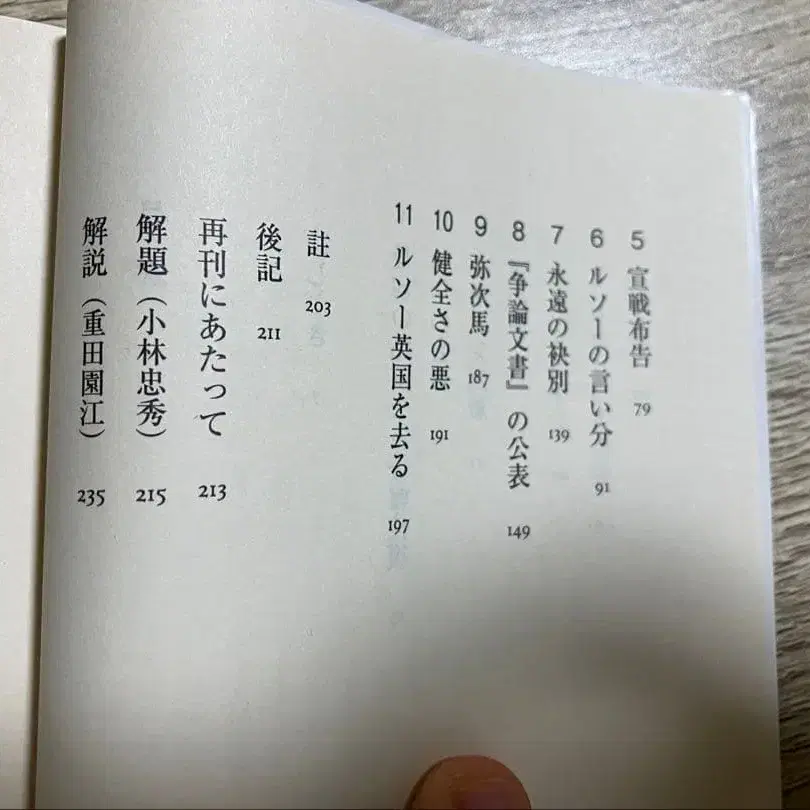 5 宣戦布告 79
6 ルソーの言い分 91
7 永遠の袂別 139
8 『争論文書』の公表 149
9 弥次馬 187
10 健全さの悪 191
11 ルソー英国を去る 197
註 203
後記 211
再刊にあたって 213
解題（小林忠秀） 215
解説（重田園江） 235